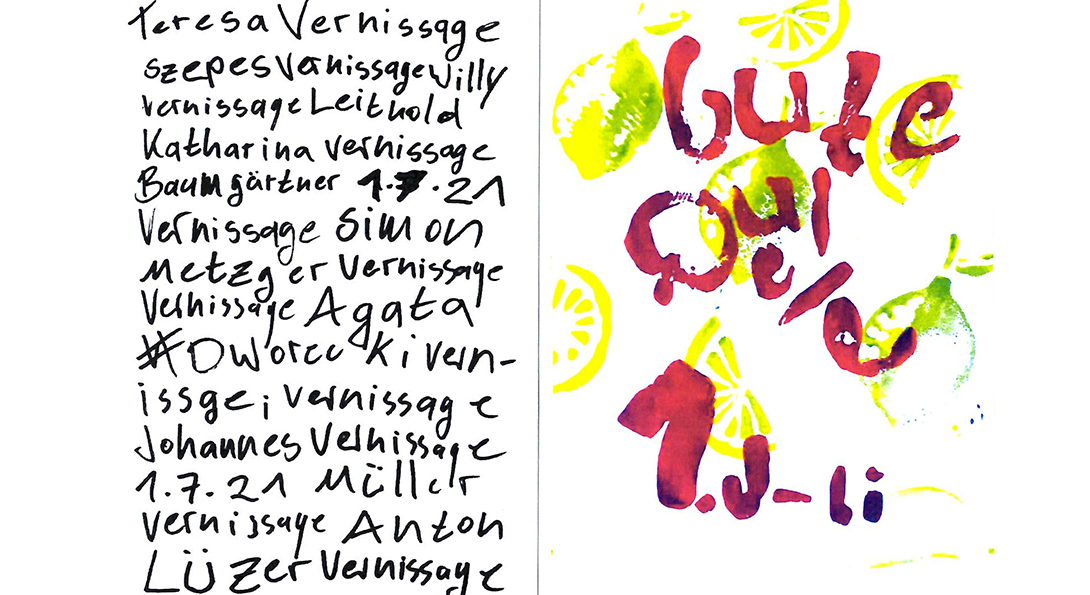 Teresa Vernissage
szepes Vernissage Willy
vernissage Leithold
Katharina vernissage
Baumgärtner 1.7.21
Vernissage Simon
Metzger Vernissage
Vernissage Agata
Dworecki vern-
issge; vernissage
Johannes Vernissage
1.7.21 Müller
vernissage Anton
Lüzer Vernissage
bute
Quel
1.J-li